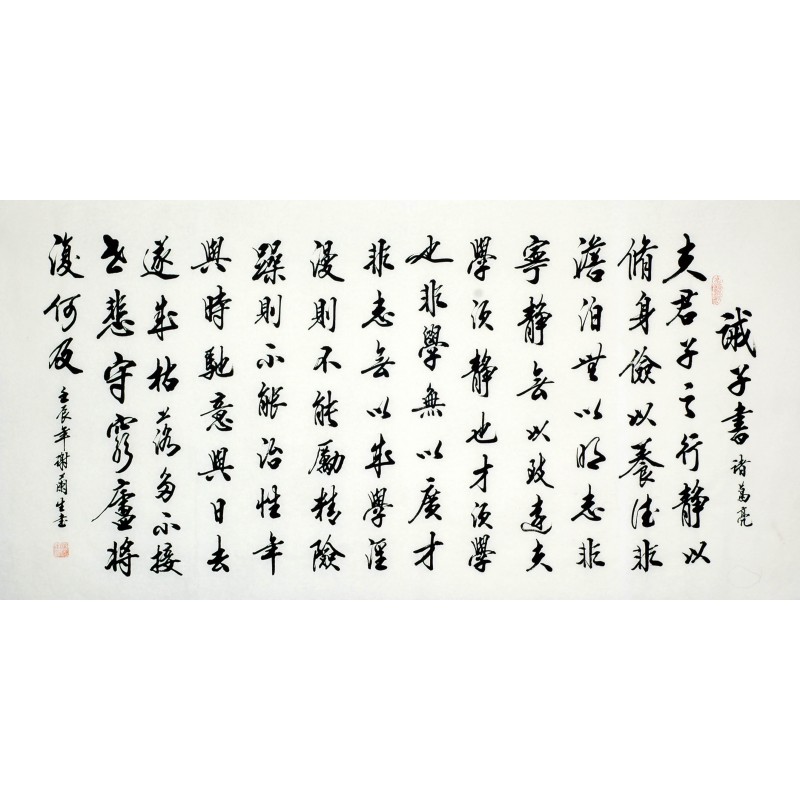 誡子書 諸葛亮
夫君子之行靜以
脩身儉以養德非
澹泊無以明志非
寧靜無以致遠夫
學須靜也才須學
也非學無以廣才
非志無以成學淫
漫則不能勵精險
躁則不能治性年
與時馳意與日去
遂成枯落多不接
世悲守窮廬將
復何及
壬辰年謝爾生書